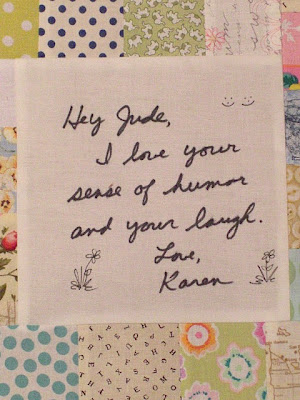 Hey Jude,
I love your
sense of humor
and your laugh.
Love,
Karen